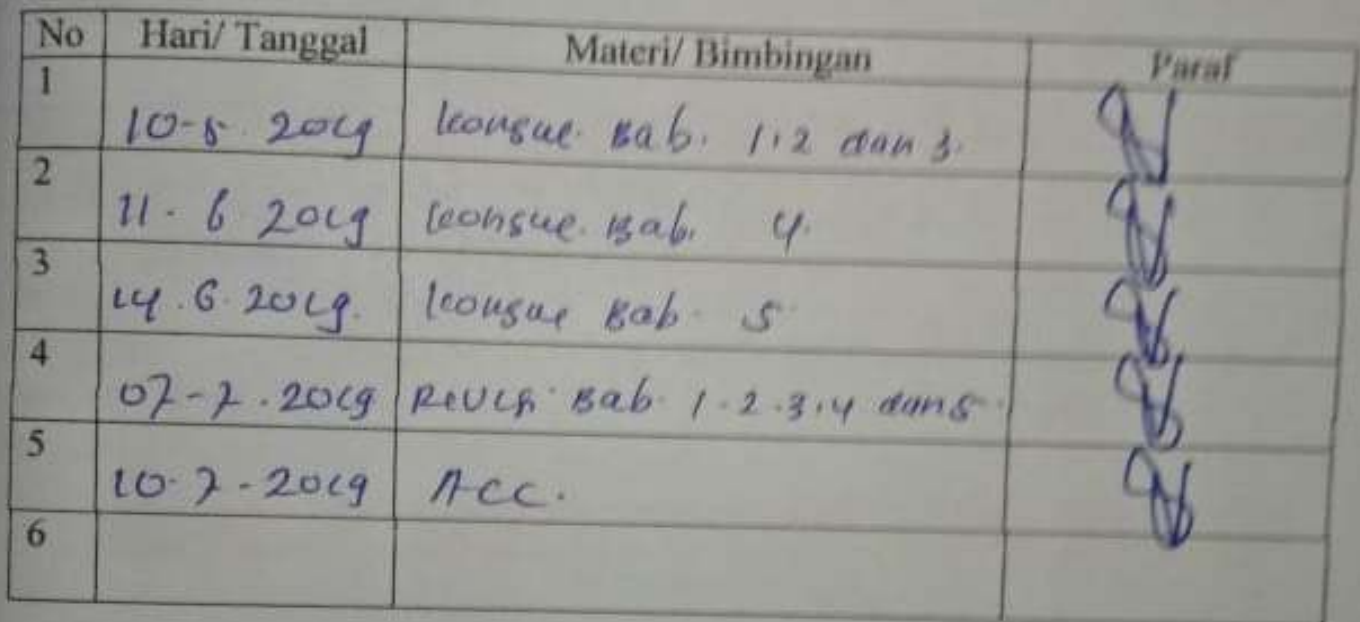 No Hari/ Tanggal Materi/ Bimbingan Paraf
1 10-5-2019 Konsul. Bab. 1.2 dan 3.
2 11.6 2019 Konsul. Bab. 4.
3 14.6.2019. Konsul Bab. 5
4 07-7.2019 Revisi Bab. 1.2.3.4 dan 5.
5 10.7-2019 Acc.
6